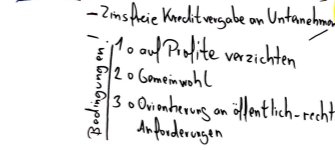 - Zinsfreie Kreditvergabe an Unternehmen
Bedingungen:
1 o auf Profite verzichten
2 o Gemeinwohl
3 o Orientierung an öffentlich-recht
Anforderungen